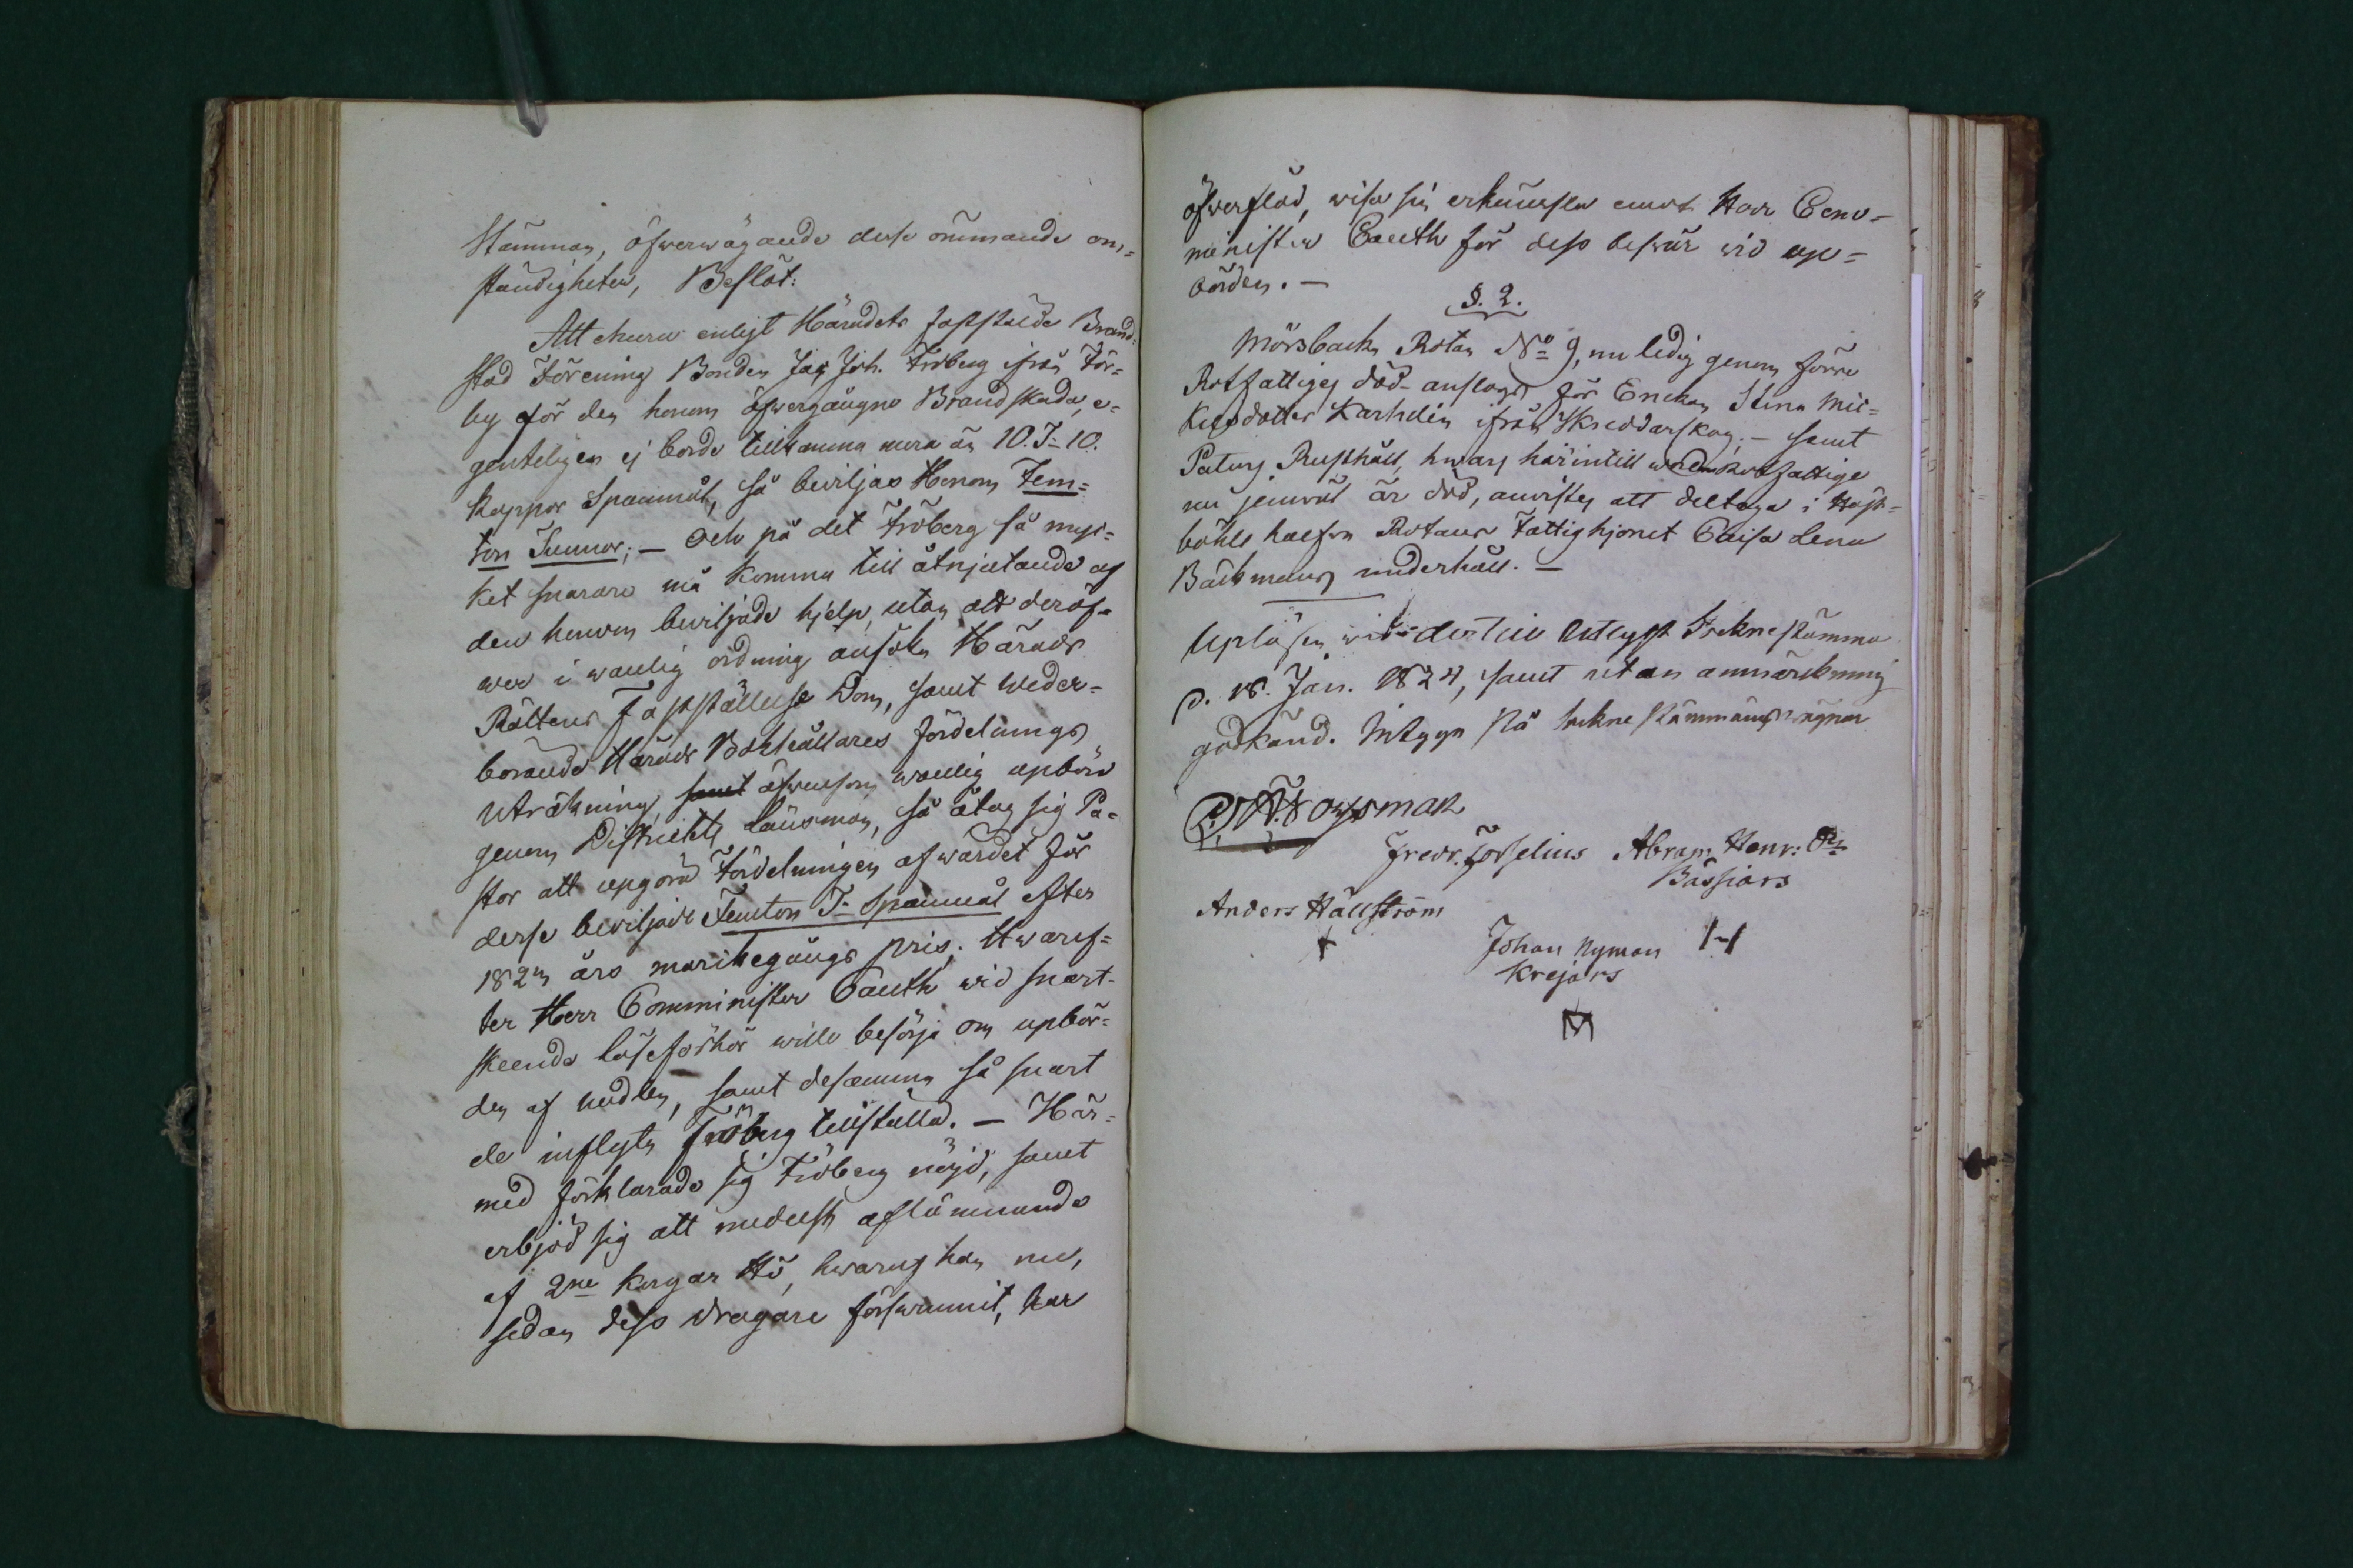 Stämman, öfwerwägande desse ömmande om=
ständigheter, Beslöt:
Att churu enligt Häradets fastställde Brand=
stod Förening Bonden Jac Joh. Fröberg ifrån För=
by för den honom öfwergångne Brandskada, e=
genteligen ej borde tillkomma mera än 10. T:r 10.
Kappor Spannmål, så beviljas Honom Fem=
ton Tunnor; — Och på det Fröberg så myc=
ket snarare må komma till åtnjutande af
den honom beviljade hjelp, utan att deröf=
wer i wanlig ordning ansöka Härads
Rättens Fastställelse Dom, samt weder=
börande Härads Bokhållares fördelnings
Uträkning, samt äfwensom wanlig upbörd
genom Districkts Länsman, så åtog sig Pa=
stor att upgöra Fördelningen af wärdet för
desse beviljade Femton T:r Spannmål efter
1823 års markegångs pris; Hwaref=
ter Herr Comminister Cauth wid snart
skeende läseförhör wille besörja om upbör=
den af medlen, samt desamma så snart
de inflyta Fröberg tillställa. — Här=
med förklarade sig Fröberg nöjd, samt
erbjöd sig att medelst aflämnande
af 2ne korgar Hö, hwaraf han nu,
sedan dess dragare försvunnit, har
öfwerflöd, wisa sin erkänsla emot Herr Com=
minister Cauth för dess beswär wid up=
börden. —
§. 2.
Mörsbacka Rotan No 9, nu ledig genom förre
Rotfattiges död anslogs för Enckan Stina Mic=
kelsdotter Karhelin ifrån Skreddarskog. — samt
Paturs Rusthåll, hwars härintill warande Rotfattige
nu jemwäl är död, anvistes att deltaga i
böhle halfva Rotans Fattighjonet Caisa Lena
Bäckmans underhåll. —
Upläsen wid dertill Utlyst Sockne stämma
d. 18. Jan. 1824, samt utan anmärkning
godkänd. Intyga På Sockne stämmans wägnar
Fredr. Forselius Abram Henr:
Bässars
Anders Hällström
Johan Nyman
Krejars